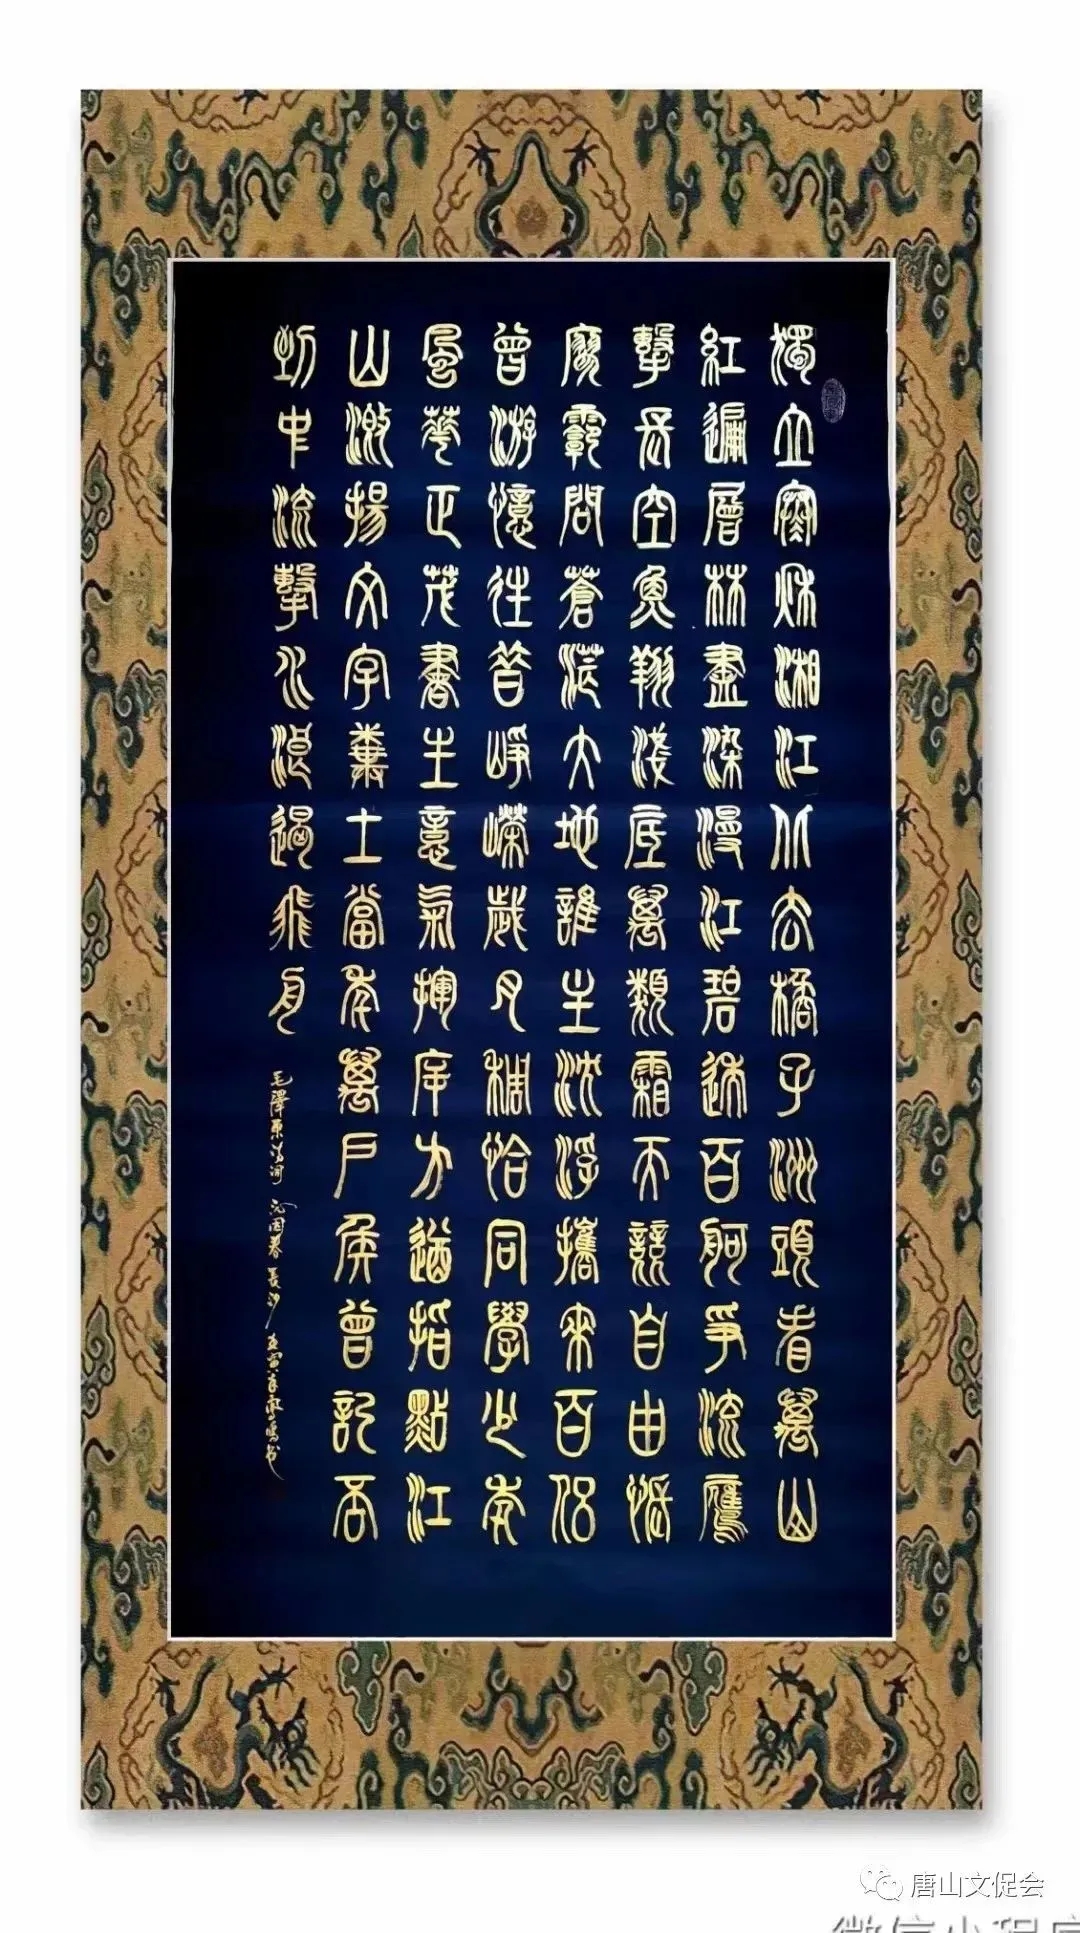 獨立寒秋湘江北去橘子洲頭看萬山
紅遍層林盡染漫江碧透百舸爭流鷹
擊長空魚翔淺底萬類霜天競自由悵
寥廓問蒼茫大地誰主沉浮攜來百侶
曾游憶往昔崢嶸歲月稠恰同學少年
風華正茂書生意氣揮斥方遒指點江
山激揚文字糞土當年萬戶侯曾記否
到中流擊水浪遏飛舟
毛澤東詩詞 沁園春 長沙 壬寅年 書
唐山文促会